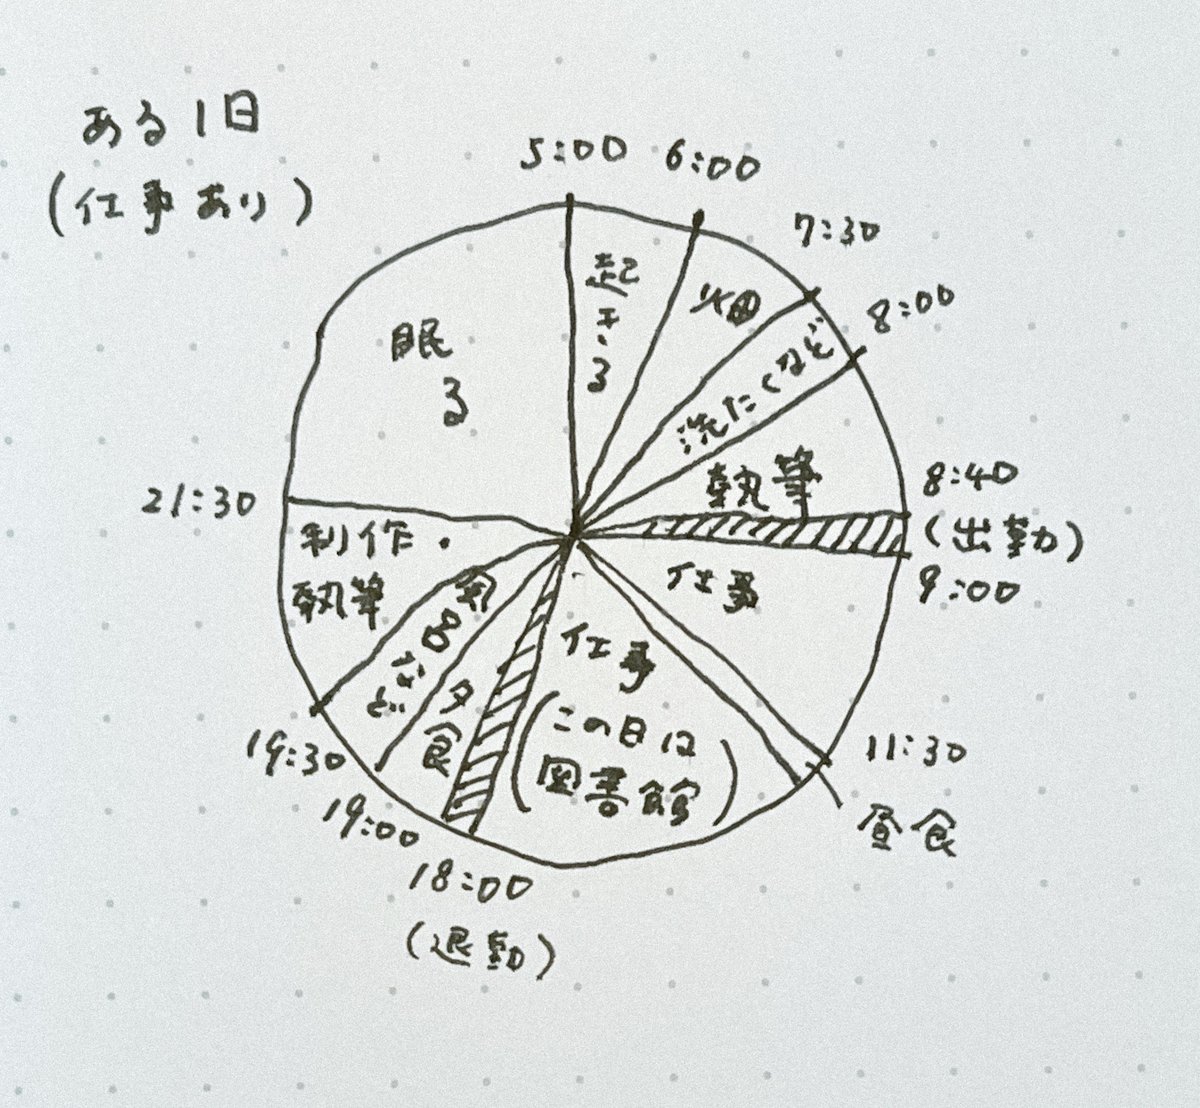 ある1日
(仕事あり)
5:00
6:00
7:30
8:00
8:40
(出勤)
9:00
11:30
昼食
18:00
(退勤)
19:00
19:30
21:30
起きる
畑
洗たくなど
執筆
仕事
仕事
(この日は
図書館)
夕食
風呂など
制作・
執筆
眠る